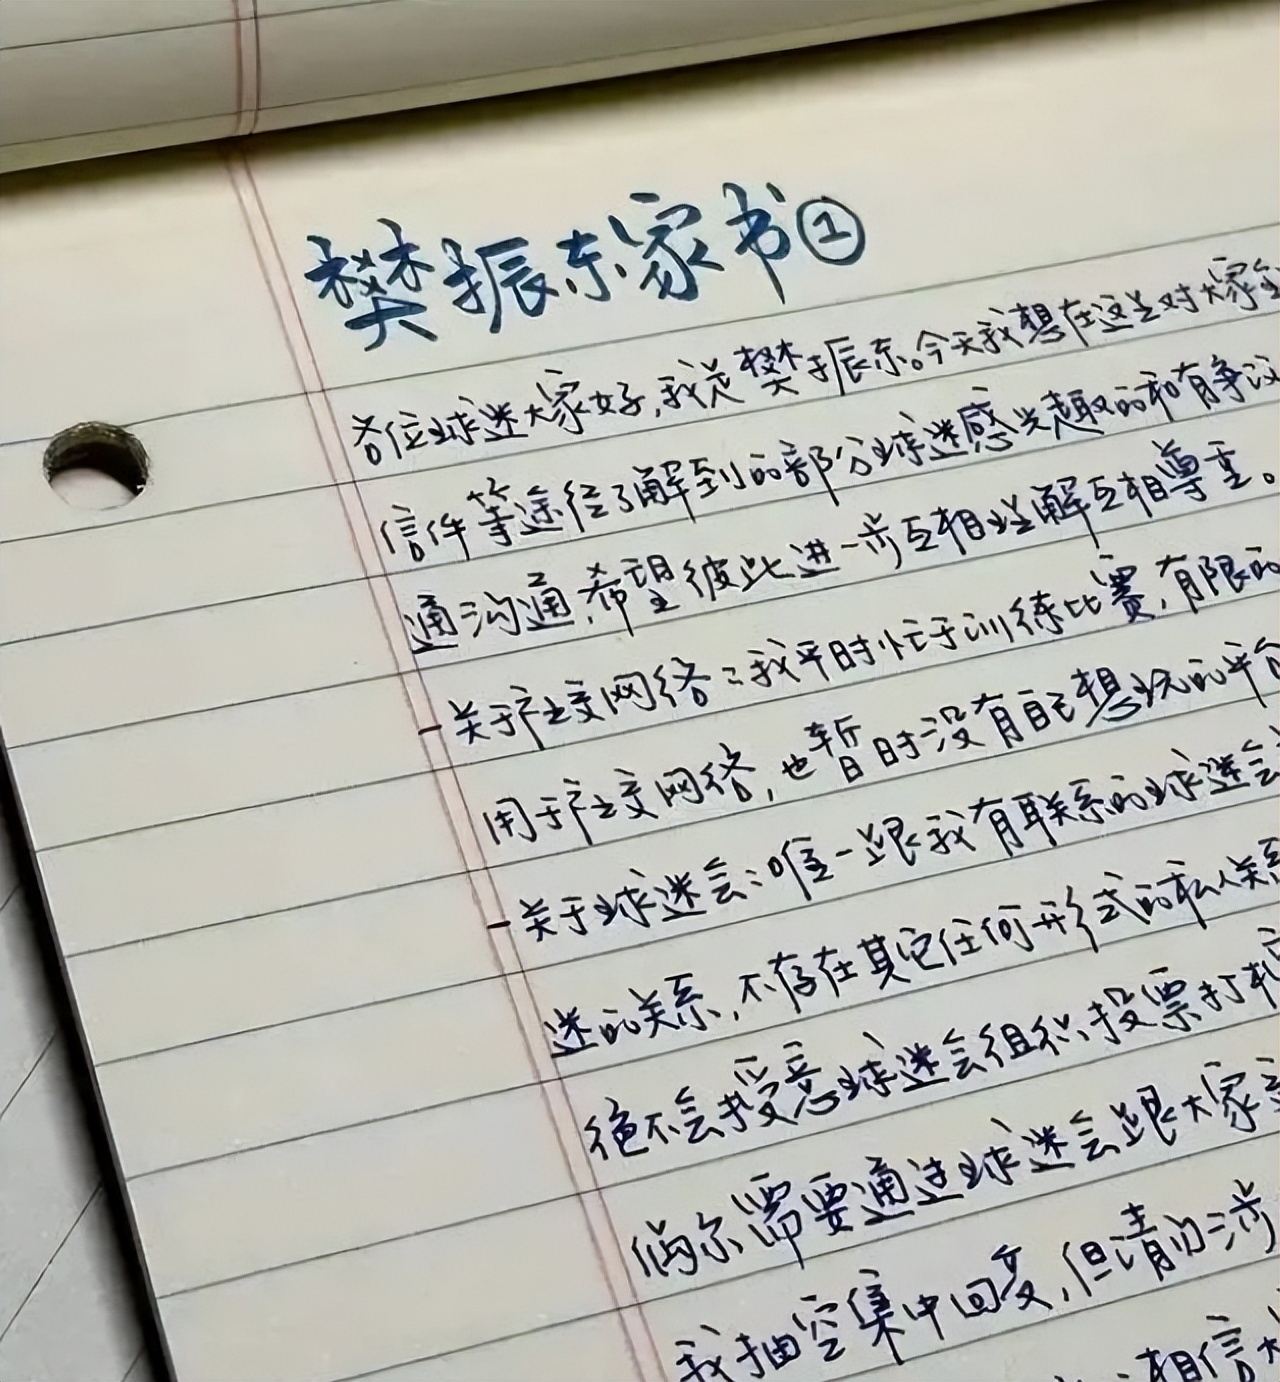 樊振东家书①
各位球迷大家好,我是樊振东。今天我想在这里对大家
信件等途径了解到的部分球迷感兴趣的和有争议
通沟通,希望彼此进一步互相理解互相尊重。
-关于社交网络:我平时忙于训练比赛,有限的
用于社交网络,也暂时没有自己想玩的平台
-关于球迷会:唯一跟我有联系的球迷会
迷的关系,不存在其它任何形式的私人关系
绝不会授意球迷会组织投票打
偶尔需要通过球迷会跟大家
我抽空集中回复,但请勿涉
相信大